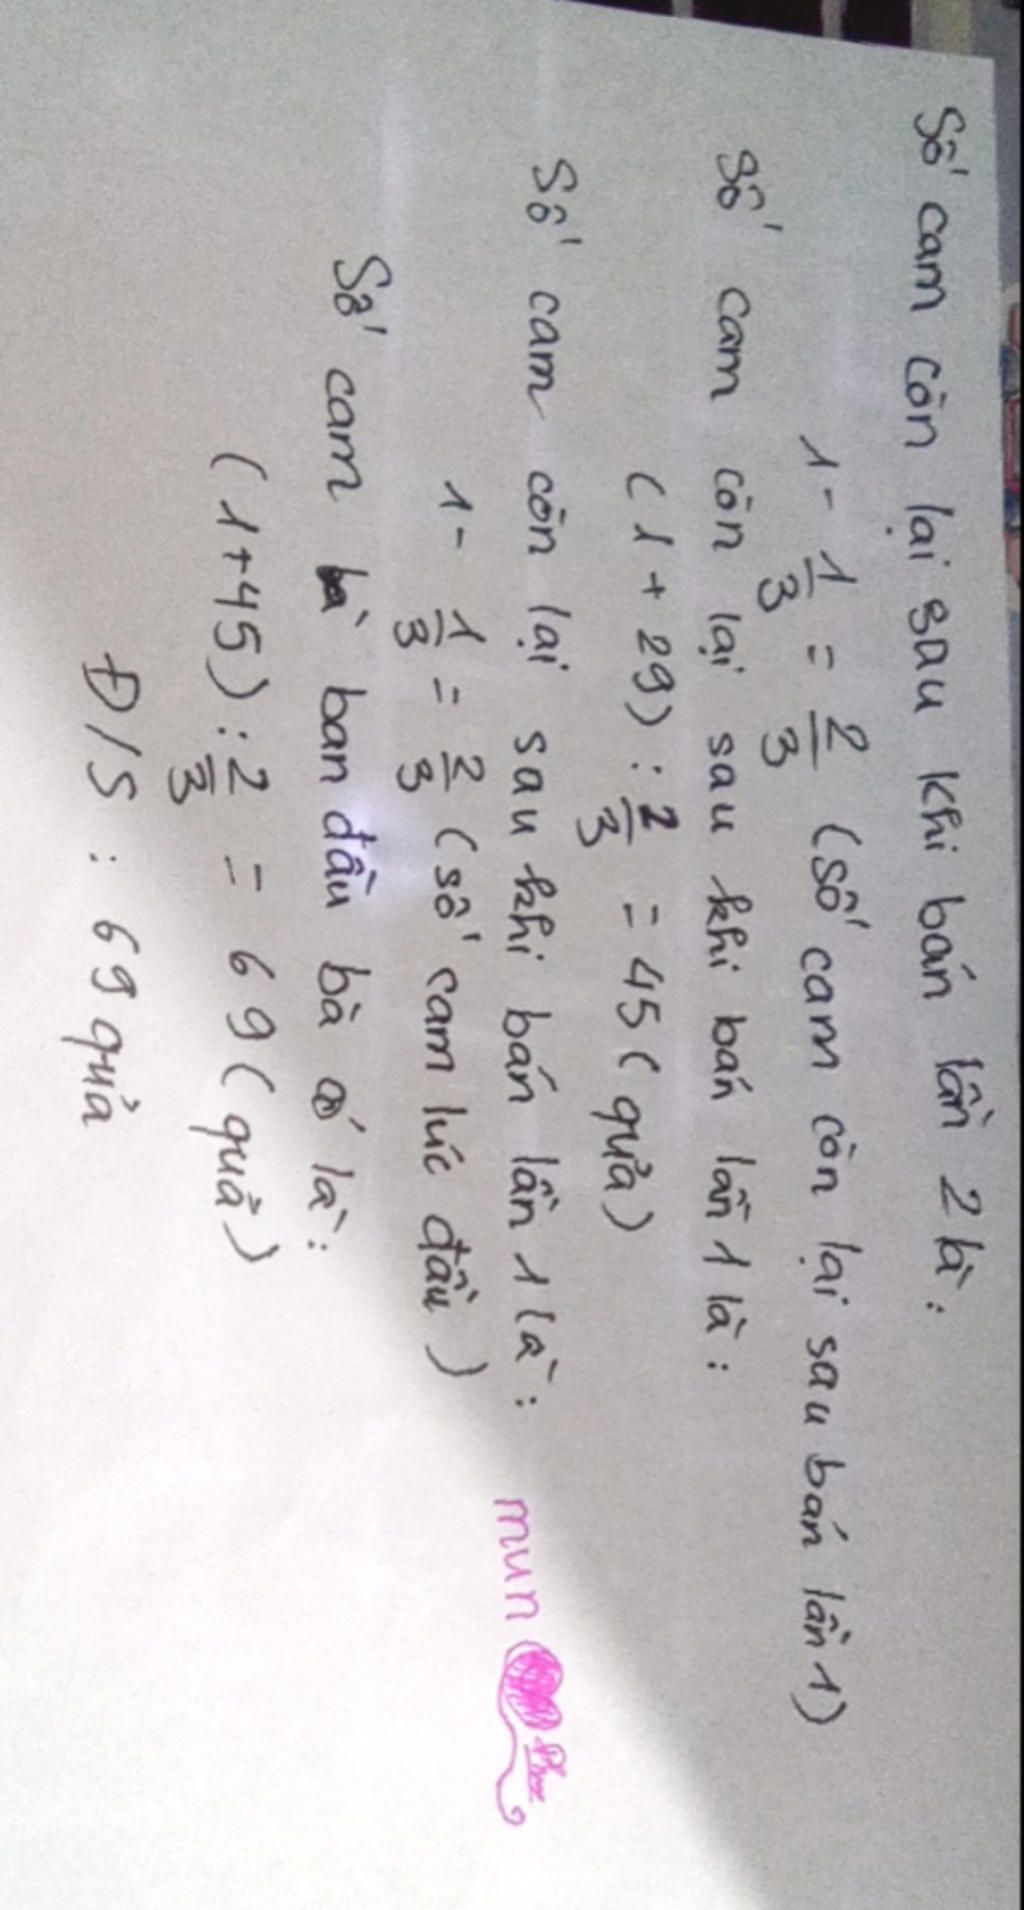 Số cam còn lại sau khi bán lần 2 là:
1 - 1/3 = 2/3 (số cam còn lại sau bán lần 1)
Số cam còn lại sau khi bán lần 1 là:
(1 + 29) : 2/3 = 45 (quả)
Số cam còn lại sau khi bán lần 1 là:
1 - 1/3 = 2/3 (số cam lúc đầu)
Số cam bà ban đầu bà có là:
(1+45) : 2/3 = 69 (quả)
Đ/S : 69 quả
mun